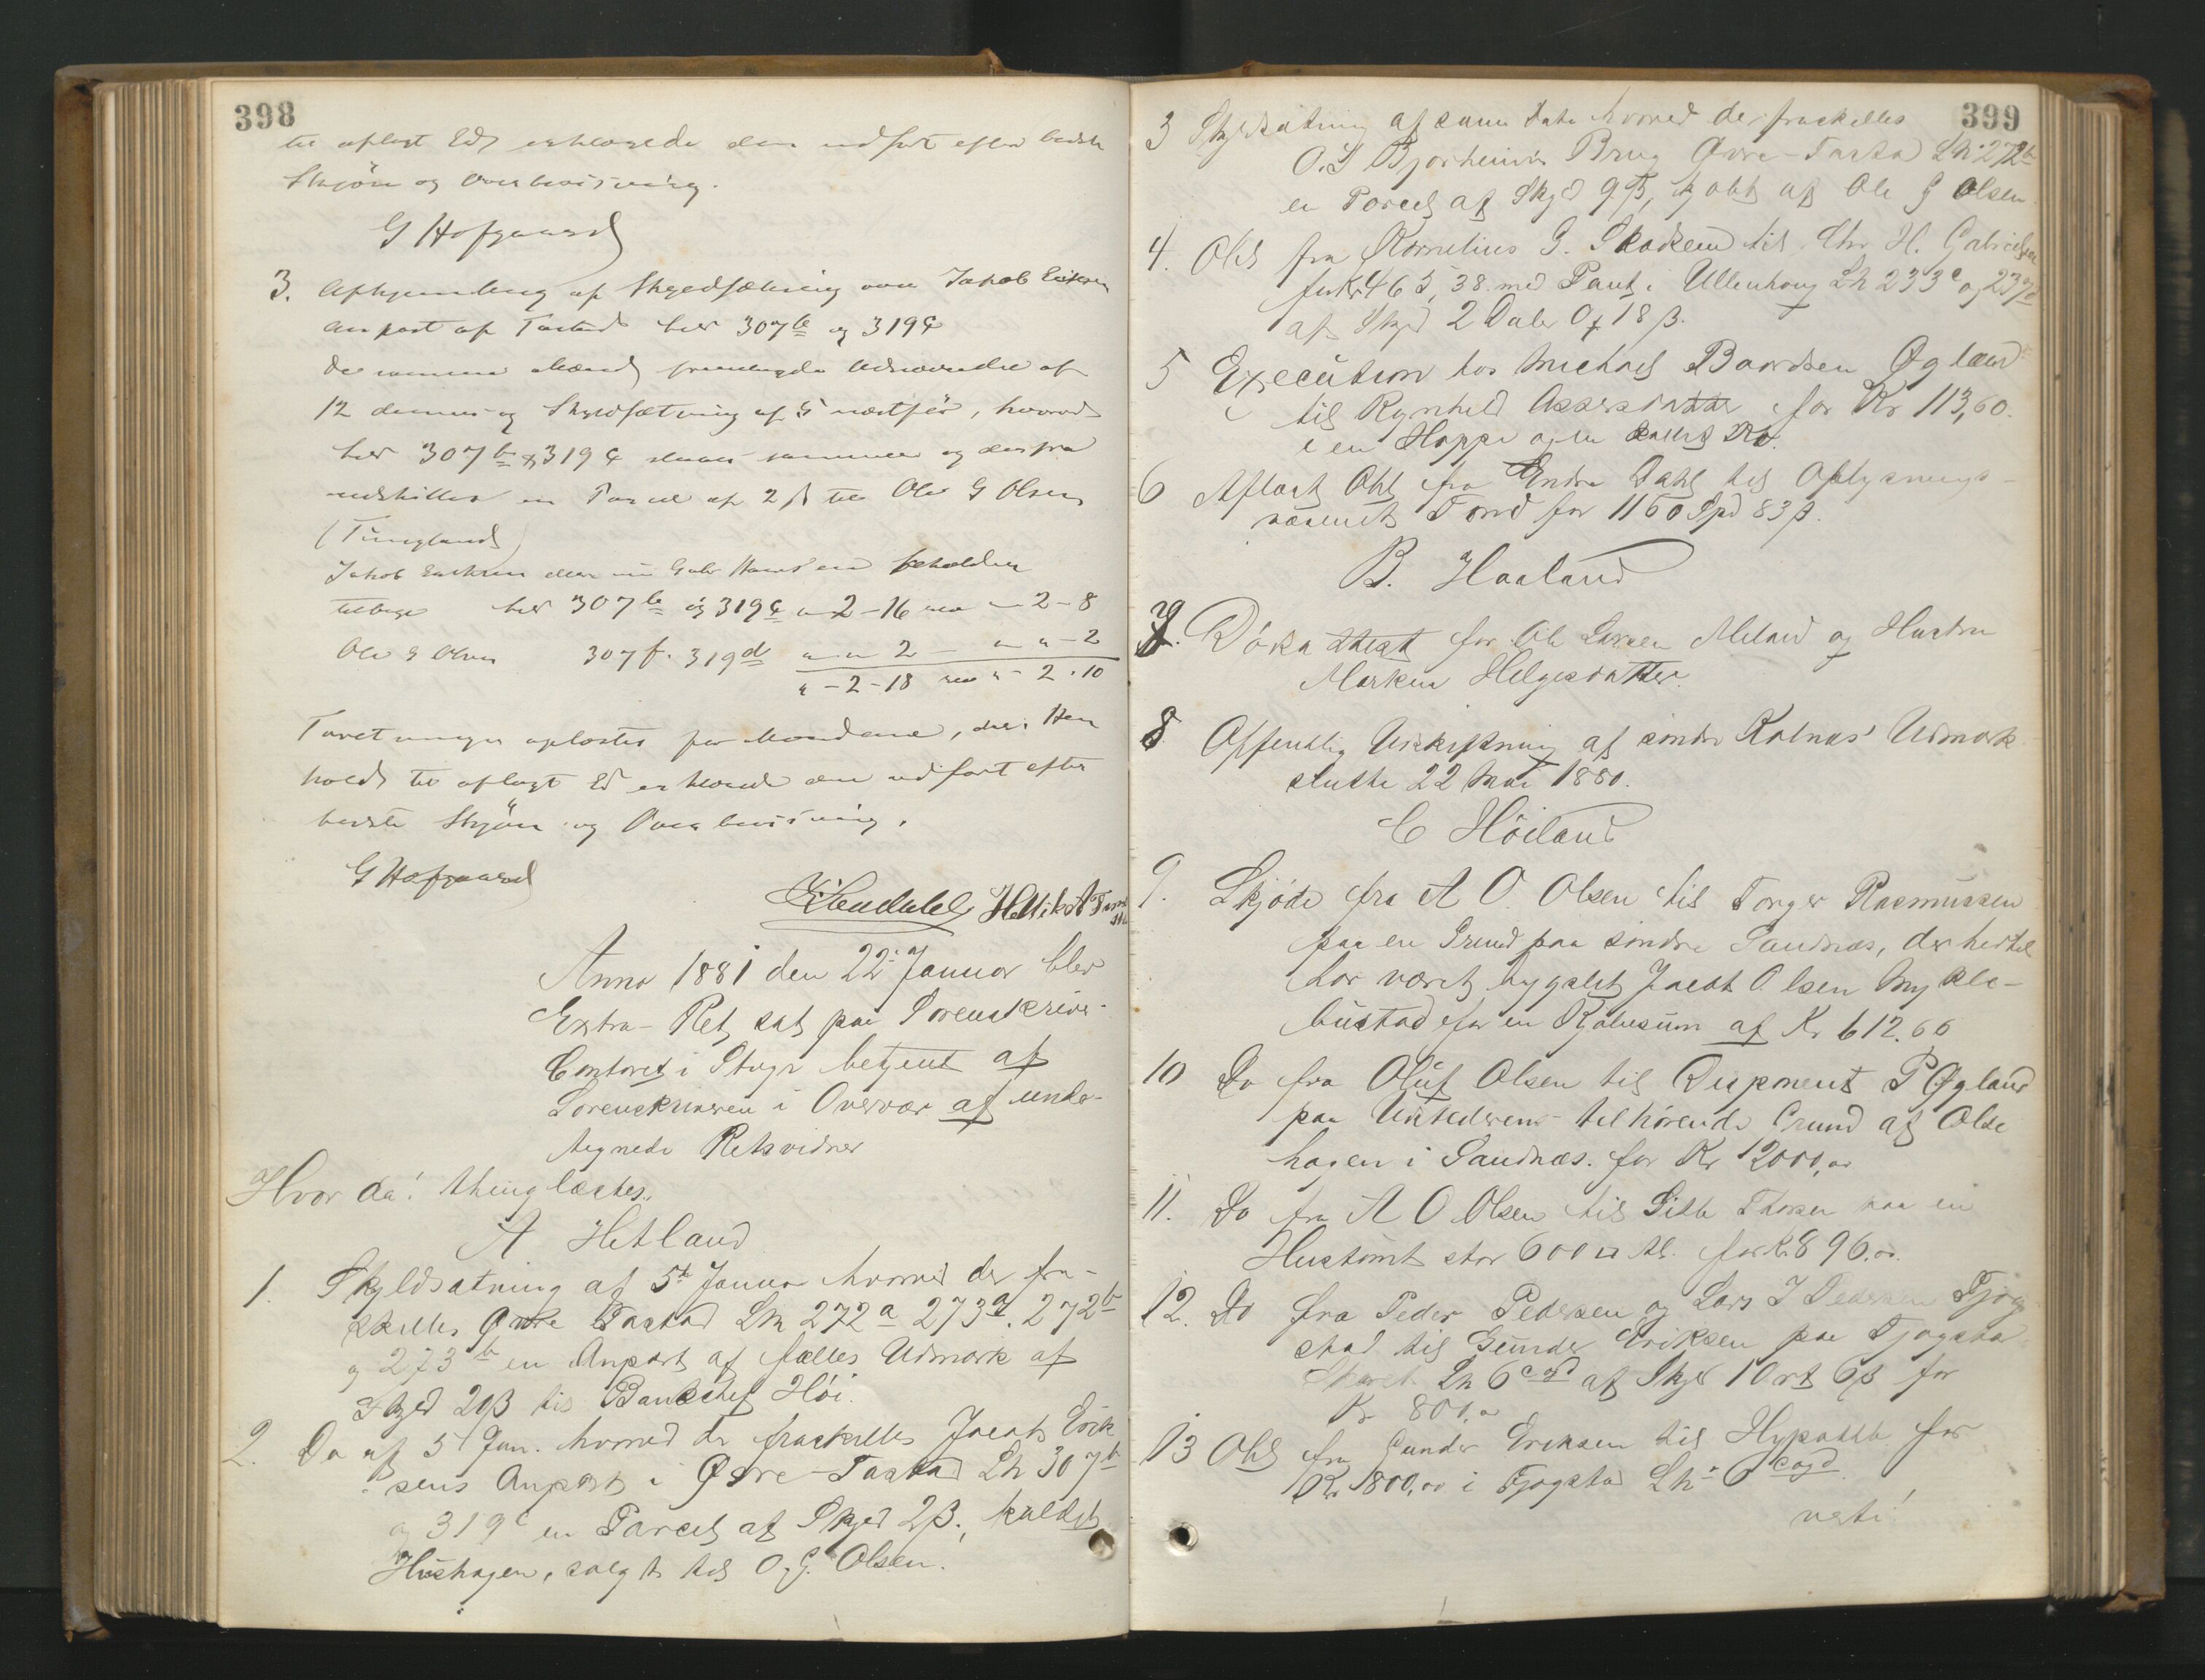 398
til aflagt Ed erklærede den udført efter bedste
Skjön og Overbeviisning.
G Hofgaard
3. Afhjemling af Skyldsætning over Jakob Eriksen
Anpart af Tastad lno 307b og 319c
De samme Mænd fremlagde Udnævnelse af
12 dennes og Skyldsætning af 5 næstfør, hvorved
lno 307b & 319c sammen og derfra
udskilles en Parcel af 2 β til Ole G Olsen
(Tungland)
Jakob Eriksen eller nu Gabr Hansen beholder
tilbage lno 307b og 319c " 2-16 rev " 2-8
Ole G Olsen 307f. 319d " " 2 - " " - 2
" - 2-18 rev " - 2.10
Forretningen oplæstes for Mændene, der i Hen
hold til aflagt Ed erklærede den udført efter
bedste Skjön og Overbeviisning.
G Hofgaard
Anno 1881 den 22. Januar blev
Extra-Ret sat paa Sorenskriver-
Contoret i Stuge betjent af
Sorenskriveren i Overvær af under-
tegnede Retsvidner
Hvor da! thinglæstes.
A Hetland
1. Skyldsætning af 5te Januar hvorved der fra-
skilles Øvre Tastad Ln 272a 273a. 272b
og 273b en Anpart af fælles Udmark af
Skyld 20β til Bankchef Höi.
2. Do af 5 Jan. hvorved der fraskilles Jacob Erik
sens Anpart i Øvre-Tastad Ln 307b
og 319c en Parcel af Skyld 2β., kaldet
Hushagen, solgt til O. G. Olsen.
399
3 Skyldsætning af samme Dato hvorved der fraskilles
O. S Bjorheims Brug Øvre-Tasta Ln 272b
en Parcel af Skyld 9β, kjøbt af Ole G Olsen
4. Obl fra Kornelius G. Skadsem til Chr. H. Gabrielsen
for Kr 465,38 med Pant i Ullenhoug Ln 233c og 237d
af Skyld 2 Daler 0 f 18 β.
5 Execution hos Michael Baardsen Øgland
til Rynhild Assersdatter for Kr 113,60.
i en Hoppe og en
6 Aflæst Obl fra Endre Dahl til Oplysnings-
væsenets Fond for 1160 Spd 83 β.
B. Haaland
7. Döds attest for Ole Larsen Meland og Hustru
Marken Helgesdatter.
8 Offentlig Udskiftning af söndre Kolnæs' Udmark
sluttet 22 Mai 1880.
C Höiland
9. Skjöde fra A O. Olsen til Torger Rasmussen
paa en Grund paa söndre Sandnæs, der hertil
har været bygslet Jacob Olsen Mykle-
bustad for en Kjøbesum af Kr 612.66
10 Do fra Oluf Olsen til Disponent P Øgland
paa Udstederens tilhörende Grund af Olse
hagen i Sandnæs. for Kr 2000,00
11. Do fra A O Olsen til Sille Thorsen paa en
Hustomt stor 600 □ Al. for Kr 896.00.
12. Do fra Peder Pedersen og Lars J Pedersen Fjog
stad til Gunder Eriksen paa Fjogsta
Ln 6 c og d af Skyld 1 Ort 6β for
Kr 800.00
13 Obl fra Gunder Eriksen til Hypothb for
Kr 1800,00 i Fjogstad Ln 6 c og d
verti